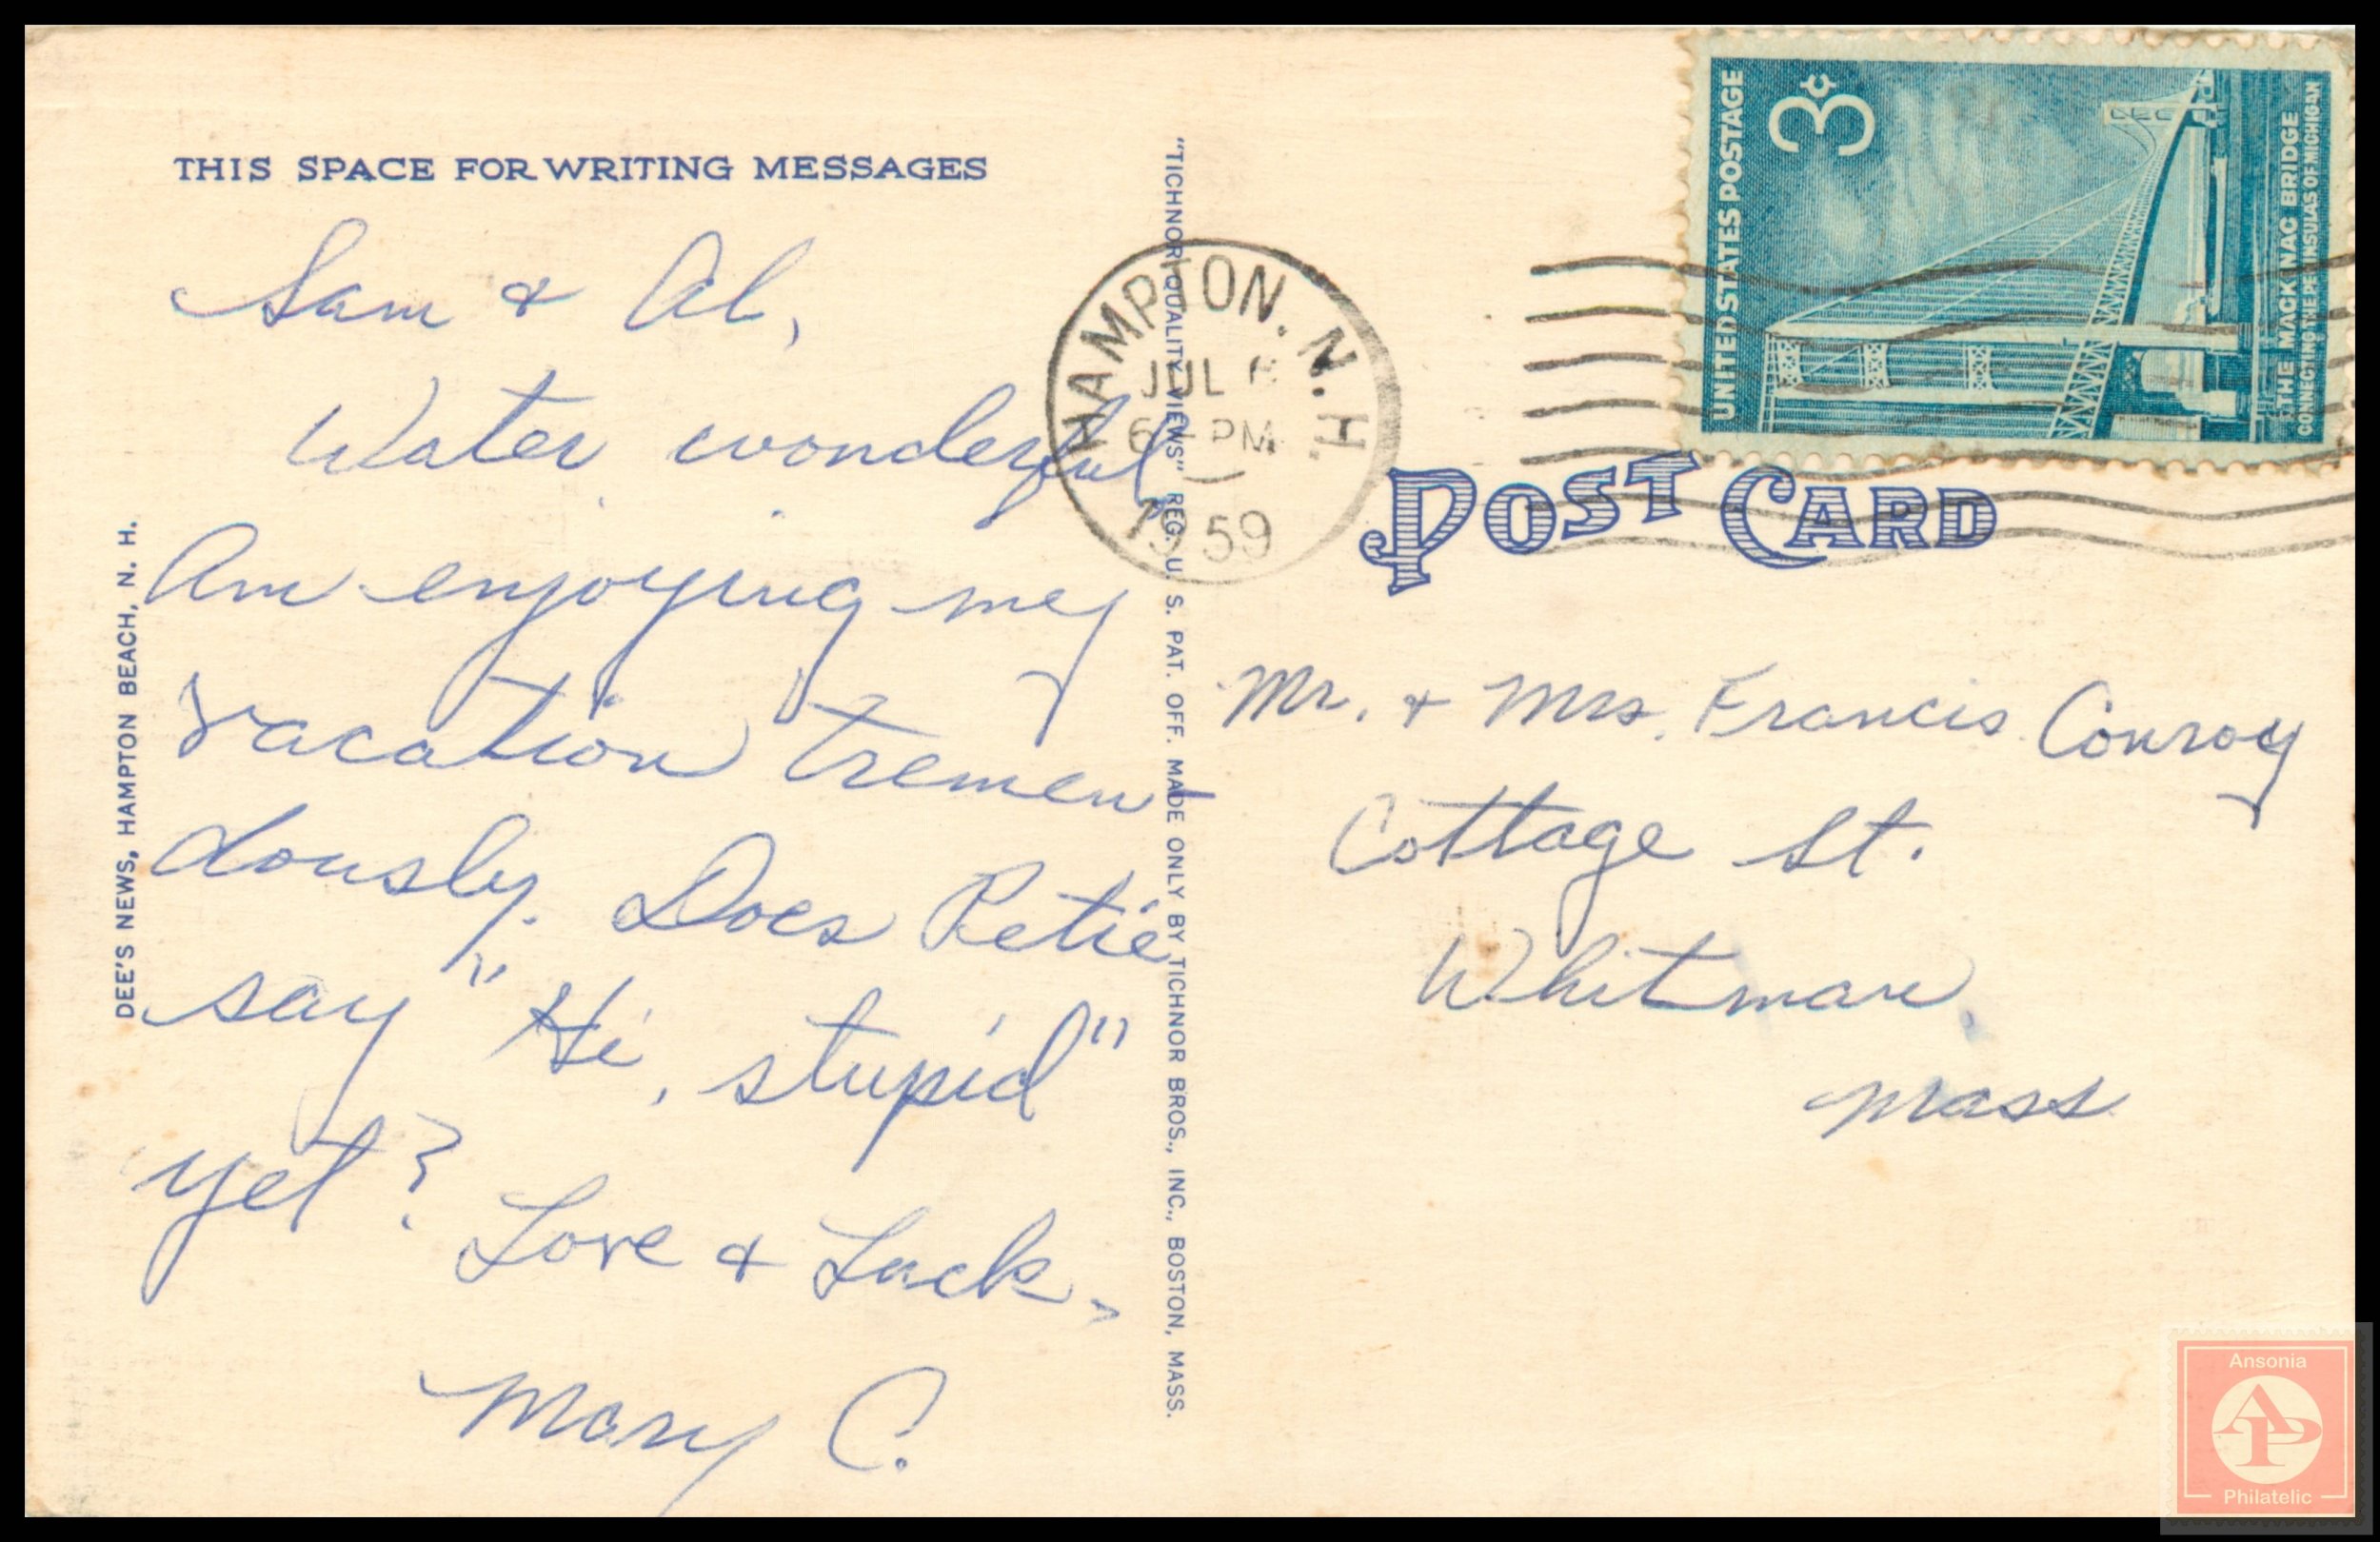 THIS SPACE FOR WRITING MESSAGES
Sam & Al,
Water wonderful.
Am enjoying my
vacation tremen-
dously. Does Petie
say "Hi, stupid"
yet?
Love & Luck,
Mary C.
DEE'S NEWS, HAMPTON BEACH, N. H.
"TICHNOR QUALITY VIEWS" REG. U. S. PAT. OFF. MADE ONLY BY TICHNOR BROS., INC., BOSTON, MASS.
HAMPTON. N. H.
JUL
6 - PM
1959
UNITED STATES POSTAGE
3¢
THE MACKINAC BRIDGE
CONNECTING THE PENINSULAS OF MICHIGAN
POST CARD
Mr. + Mrs. Francis Conroy
Cottage St.
Whitman,
Mass
Ansonia
AP
Philatelic